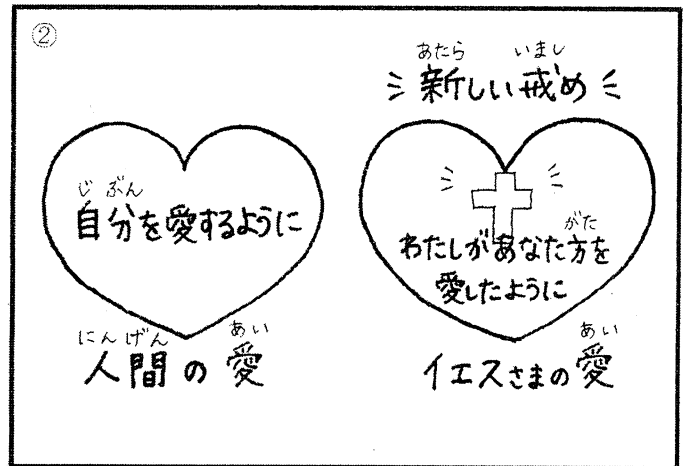 ②
あたら いまし
新しい戒め
じぶん
自分を愛するように
にんげん あい
人間の愛
がた
わたしがあなた方を
愛したように
あい
イエスさまの愛